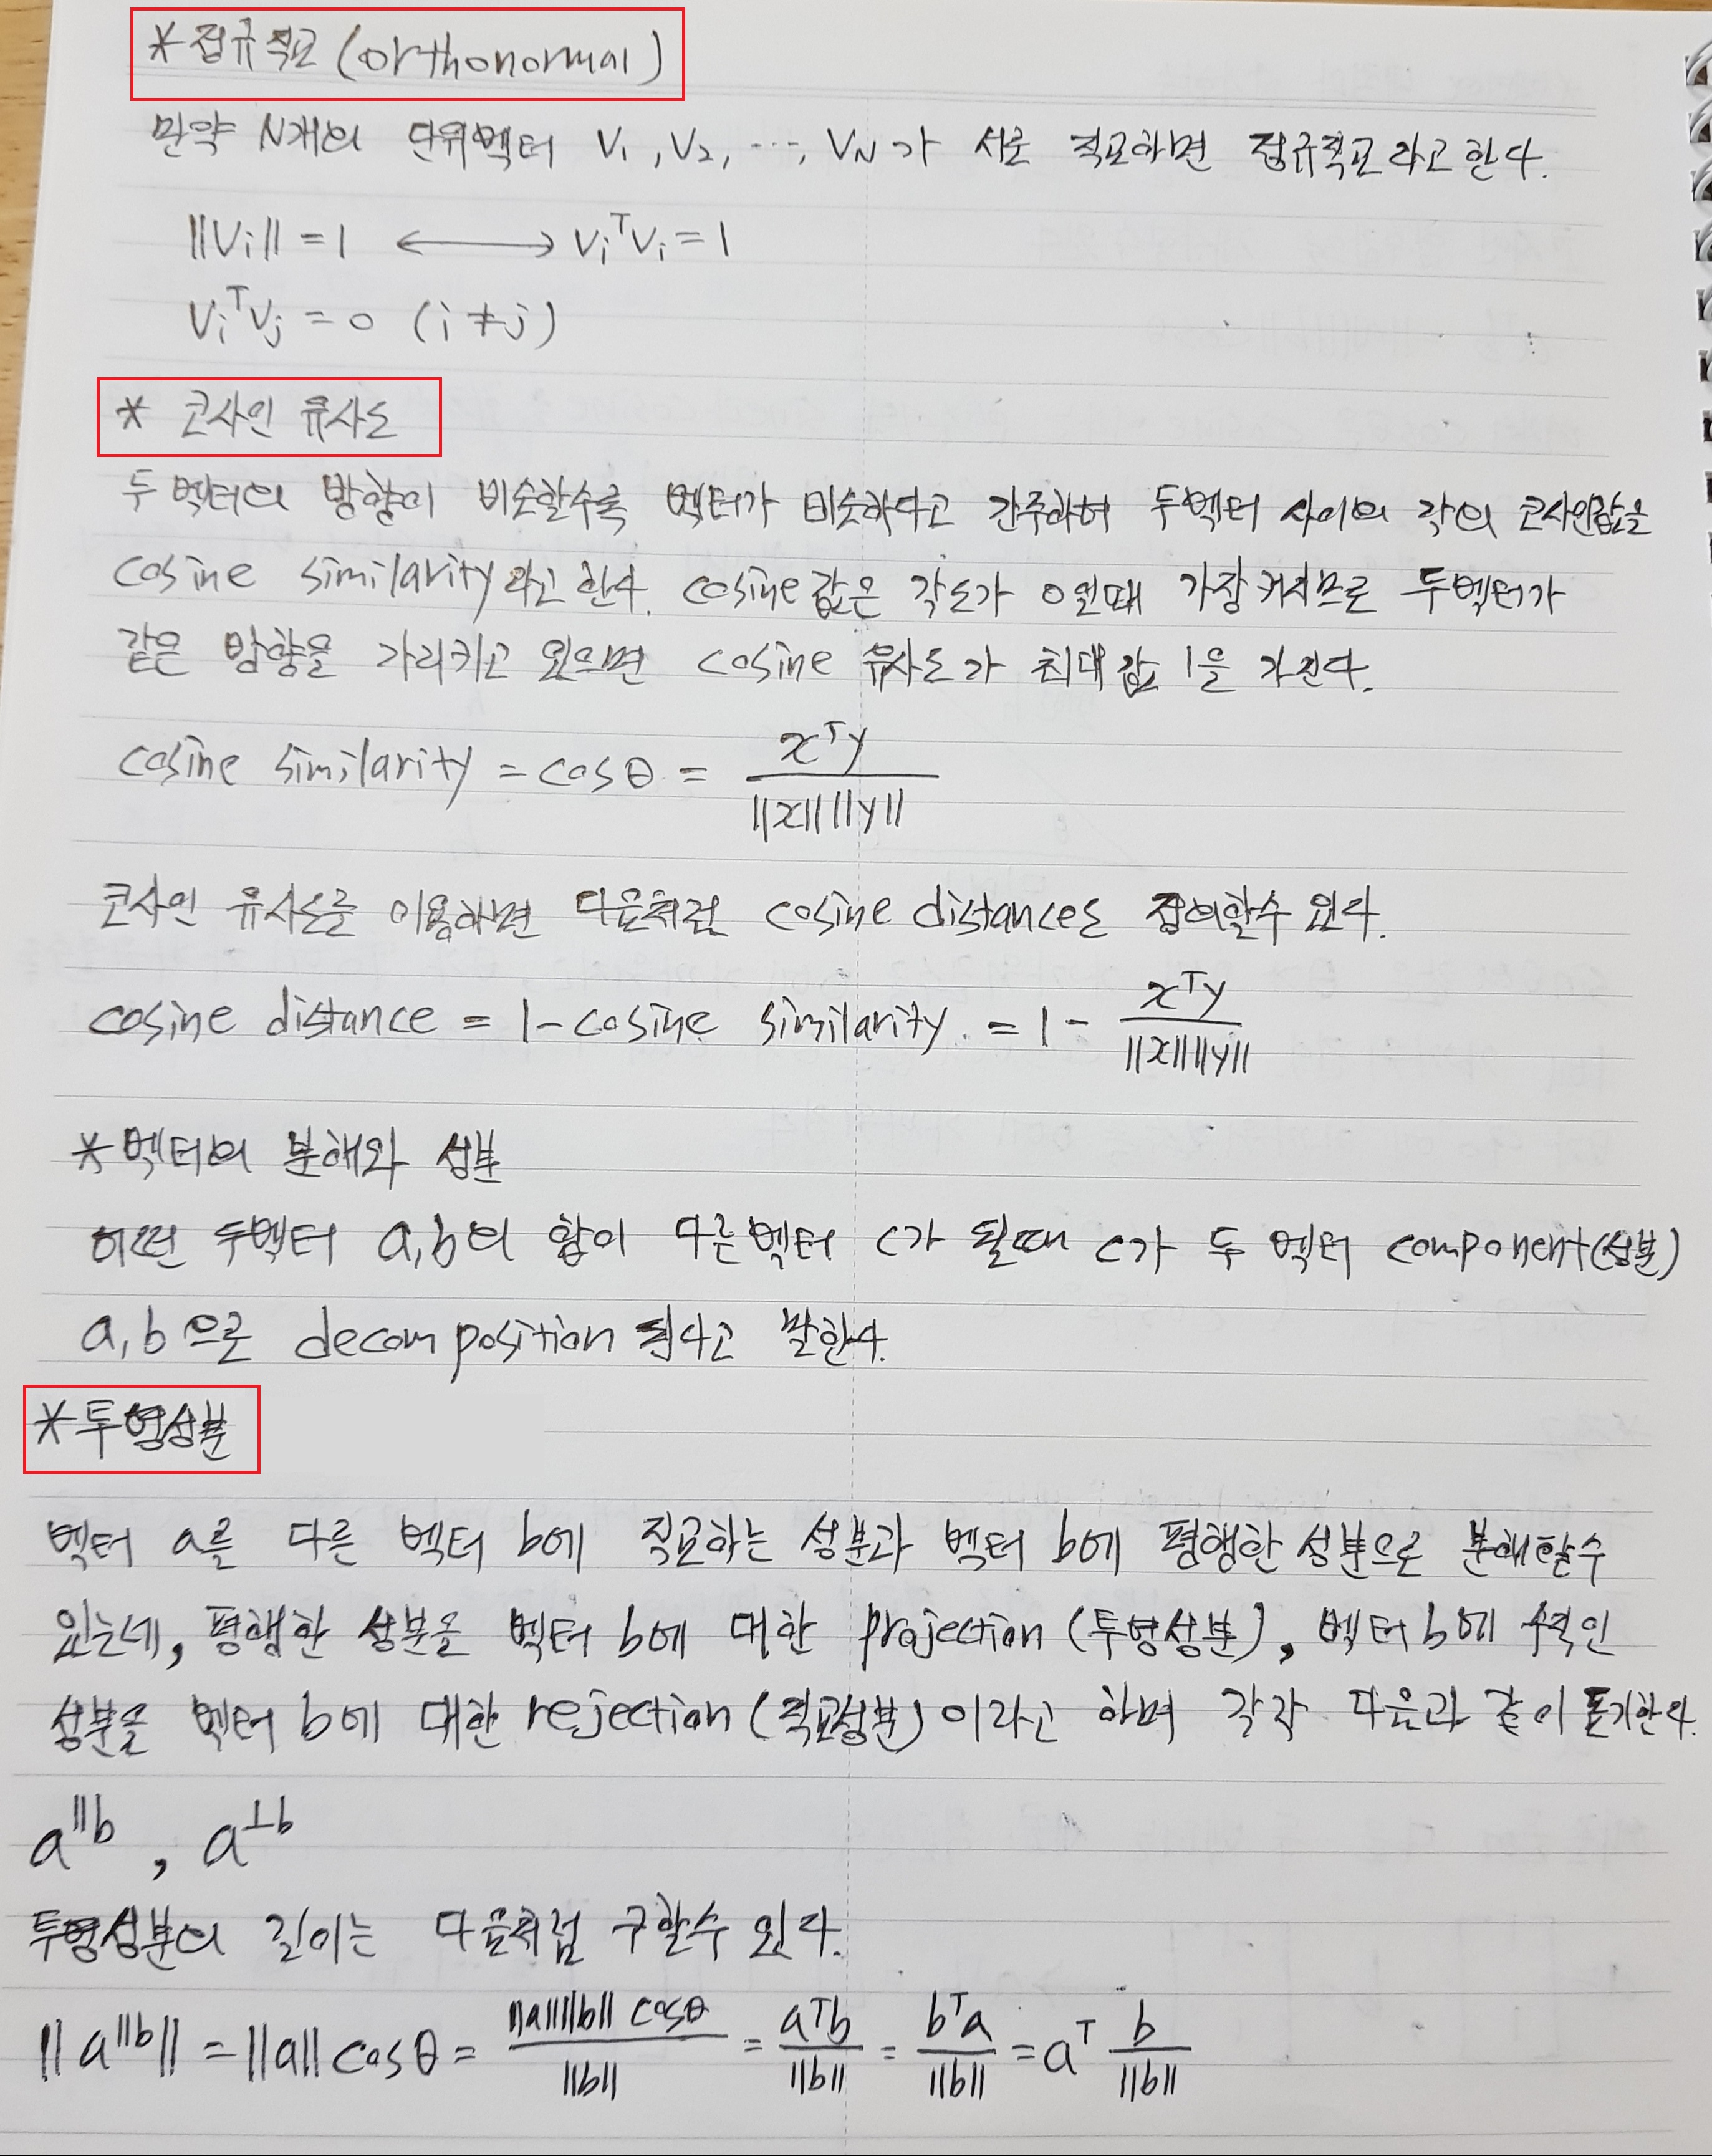 *정규직교 (orthonormal)
만약 N개의 단위벡터 V₁, V₂, ⋯, V_N가 서로 직교하면 정규직교라고 한다.
||Vᵢ|| = 1 ⟷ VᵢᵀVᵢ = 1
VᵢᵀVⱼ = 0 (i ≠ j)
* 코사인 유사도
두 벡터의 방향이 비슷할수록 벡터가 비슷하다고 간주하여 두벡터 사이의 각의 코사인값을
cosine similarity라고 한다. cosine값은 각도가 0일때 가장 커지므로 두벡터가
같은 방향을 가리키고 있으면 cosine 유사도가 최대값 1을 가진다.
cosine similarity = cosθ = xᵀy / ||x|| ||y||
코사인 유사도를 이용하면 다음처럼 cosine distance도 정의할수 있다.
cosine distance = 1 - cosine similarity. = 1 - xᵀy / ||x|| ||y||
*벡터의 분해와 성분
어떤 두벡터 a, b의 합이 다른벡터 c가 될때 c가 두 벡터 component(성분)
a, b으로 decomposition 된다고 말한다.
*투영성분
벡터 a를 다른 벡터 b에 직교하는 성분과 벡터 b에 평행한 성분으로 분해할수
있는데, 평행한 성분을 벡터 b에 대한 projection (투영성분), 벡터 b에 수직인
성분을 벡터 b에 대한 rejection (직교성분) 이라고 하며 각각 다음과 같이 표기한다.
a^{||b} , a^{⊥b}
투영성분의 길이는 다음처럼 구할수 있다.
||a^{||b}|| = ||a|| cosθ = ||a|| ||b|| cosθ / ||b|| = aᵀb / ||b|| = bᵀa / ||b|| = aᵀ b / ||b||